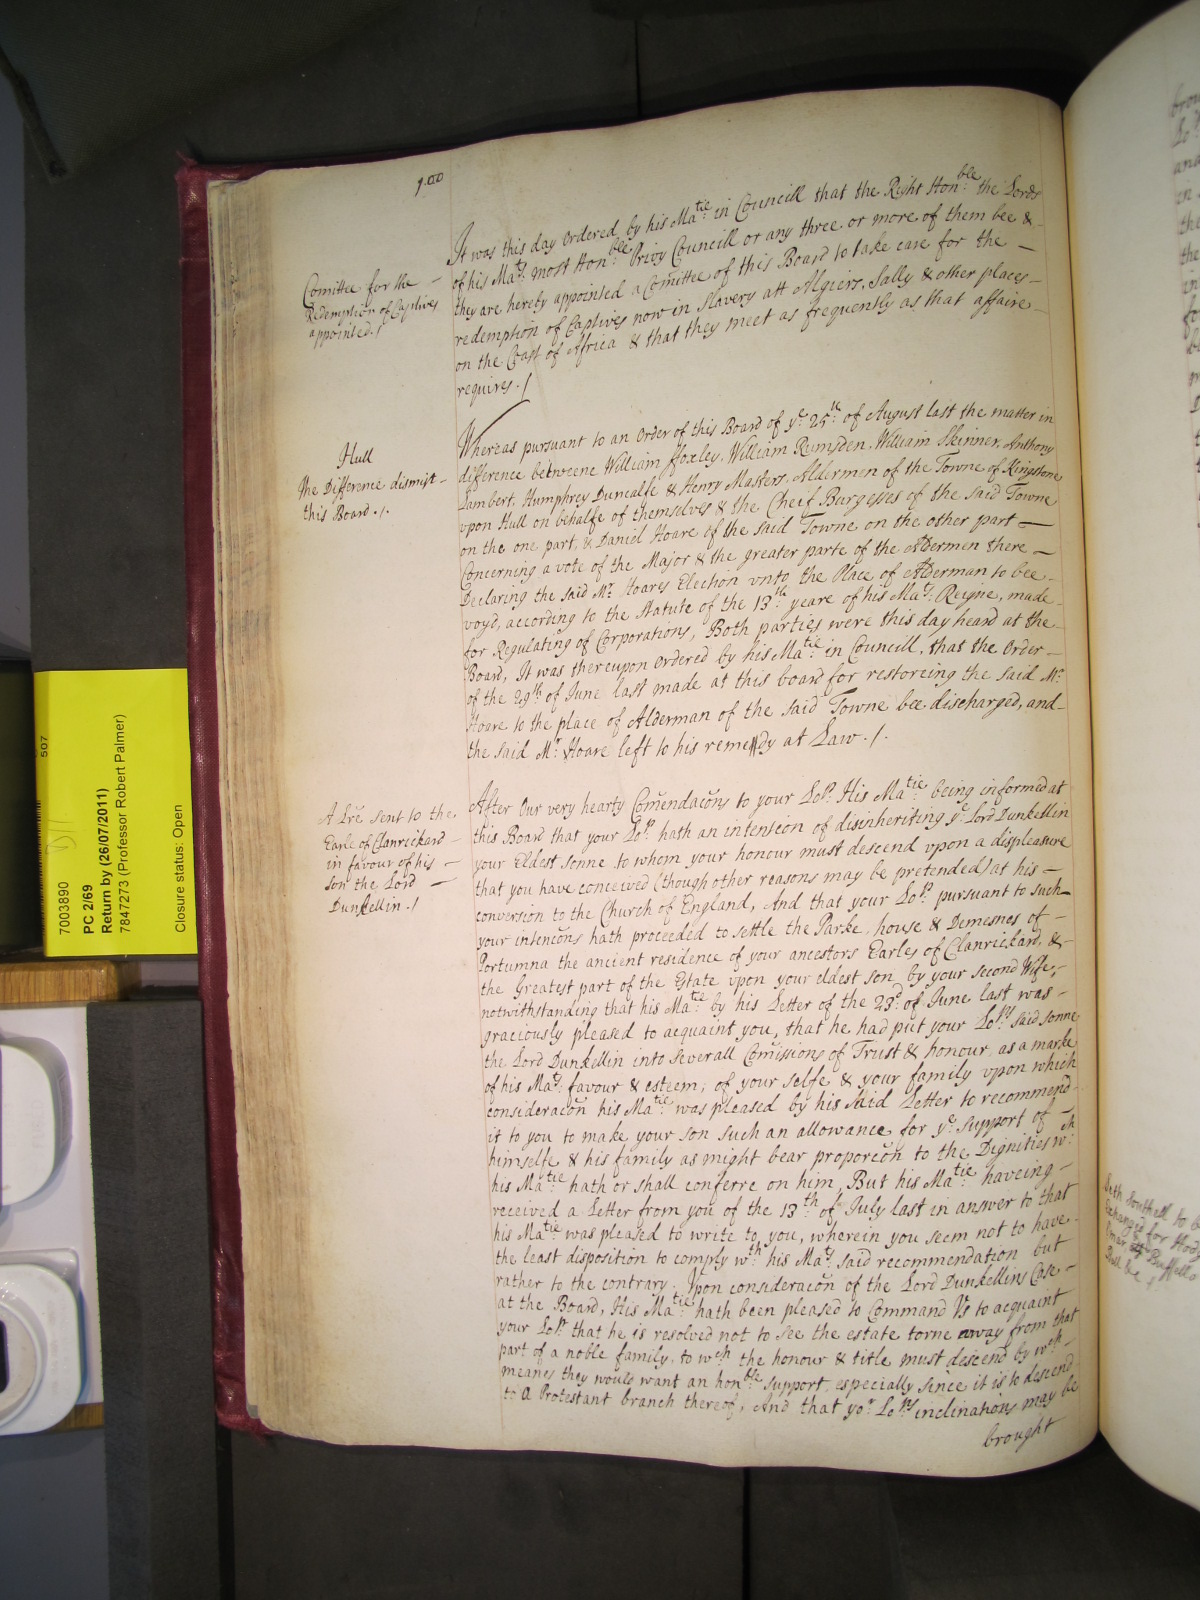 100
Comittee for the
Redemption of Captives
appointed./
It was this day Ordered by his Matie in Councill that the Right Honble the Lords
of his Mats most Honble Privy Councill or any three or more of them bee &
they are hereby appointed a Comittee of this Board to take care for the
redemption of Captives now in Slavery att Algiers, Sally & other places
on the Coast of Africa & that they meet as frequently as that affaire
requires./
Hull
The Difference dismist
this Board./.
Whereas pursuant to an Order of this Board of ye 25th of August last the matter in
difference betweene William Foxley, William Rumsden, William Skinner, Anthony
Lambert, Humphrey Duncalfe & Henry Masters, Aldermen of the Towne of Kingstone
upon Hull on behalfe of themselves & the Cheif Burgesses of the said Towne
on the one part, & Daniel Hoare of the said Towne on the other part
Concerning a vote of the Major & the greater parte of the Aldermen there
Declaring the said Mr Hoares Election vnto the Place of Alderman to bee
voyd, according to the Statute of the 13th yeare of his Mats Reigne, made
for Regulating of Corporations, Both parties were this day heard at the
Board, It was thereupon Ordered by his Matie in Councill, that the Order
of the 29th of June last made at this board for restoreing the said Mr
Hoare to the place of Alderman of the said Towne bee discharged, and
the said Mr Hoare left to his remedy at Law./.
A Lre sent to the
Earle of Clanrickard
in favour of his
son the Lord
Dunkellin./
After Our very hearty Comendacons to your Lop. His Matie being informed at
this Board that your Lop. hath an intension of disinheriting ye Lord Dunkellin
your Eldest sonne to whom your honour must descend vpon a displeasure
that you have conceived (though other reasons may be pretended) at his
conversion to the Church of England, And that your Lop. pursuant to such
your intencons hath proceeded to settle the Parke, house & Demesnes of
Portumna the ancient residence of your ancestors Earles of Clanrickard, &
the Greatest part of the Estate vpon your eldest son by your second Wife,
notwithstanding that his Matie by his Letter of the 23d of June last was
graciously pleased to acquaint you, that he had put your Lops said sonne
the Lord Dunkellin into severall Comissions of Trust & honour, as a marke
of his Mats favour & esteem, of your selfe & your family vpon which
consideracon his Matie was pleased by his said Letter to recommend
it to you to make your son such an allowance for ye support of
himselfe & his family as might bear proporcon to the Dignities wch
his Matie hath or shall conferre on him, But his Matie haveing
received a Letter from you of the 13th of July last in answer to that
his Matie was pleased to write to you, wherein you seem not to have
the least disposition to comply wth his Mats said recommendation but
rather to the contrary. Vpon consideracon of the Lord Dunkellins Case
at the Board, His Matie hath been pleased to Command Vs to acquaint
your Lop. that he is resolved not to see the estate torne away from that
part of a noble family, to wch the honour & title must descend by wch
means they would want an honble support, especially since it is to descend
to a Protestant branch thereof, And that yor Lops inclinations may be
brought
507
7003890
PC 2/69
Return by (26/07/2011)
7847273 (Professor Robert Palmer)
Closure status: Open